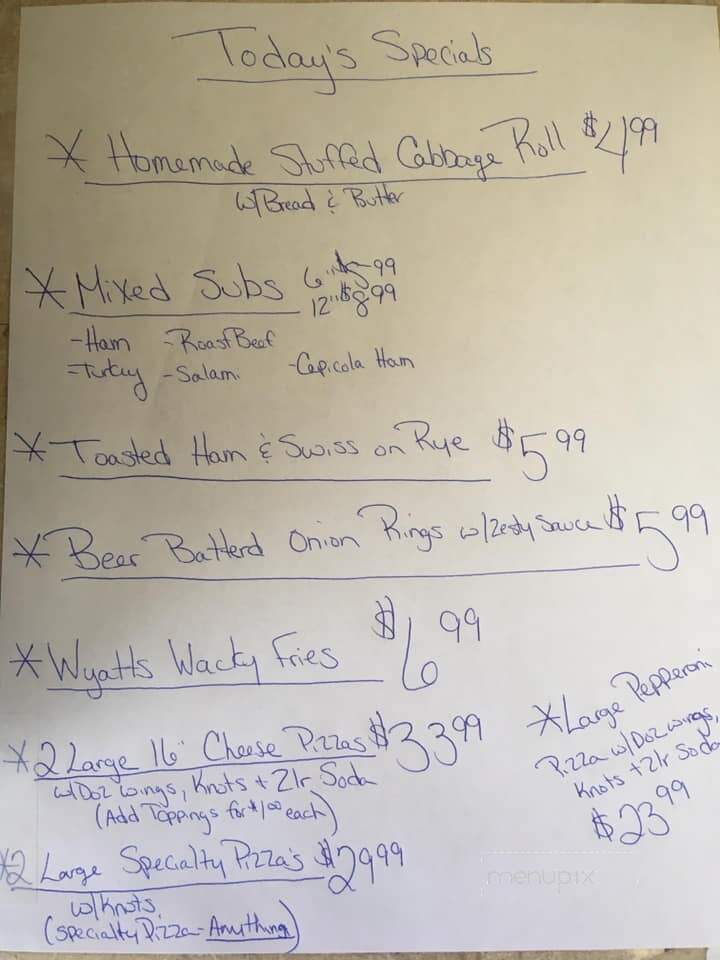 Today's Specials
* Homemade Stuffed Cabbage Roll $4.99
w/Bread & Butter
* Mixed Subs 6" $5.99
12" $8.99
-Ham -Roast Beef
-Turkey -Salami -Capicola Ham
* Toasted Ham & Swiss on Rye $5.99
* Beer Batterd Onion Rings w/Zesty Sauce $5.99
* Wyatts Wacky Fries $6.99
* 2 Large 16" Cheese Pizzas $33.99
w/Doz wings, Knots + 2ltr Soda
(Add Toppings for $1.00 each)
* Large Pepperoni
Pizza w/Doz wings,
Knots + 2ltr Soda
$23.99
*2 Large Specialty Pizza's $29.99
w/Knots
(specialty Pizza-Anything)
menupix